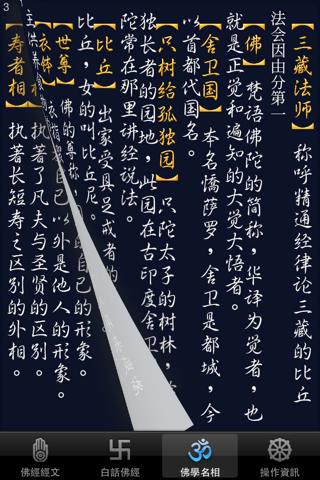 3
【三藏法师】 称呼精通经律论三藏的比丘
法会因由分第一
【佛】 梵语佛陀的简称，华译为觉者，也
就是正觉和遍知的大觉大悟者。
【舍卫国】 本名憍萨罗，舍是都城，今
以首都代国名。
【只树给孤独园】 只陀太子的树林，
独长者的园地，此园在古印度舍卫
陀常在那里讲经说法。
【比丘】 出家受具足戒者的
比丘，女的叫比丘尼。
的自己的形象。
【世尊】 佛的尊称，
以外是他人的形象。
【衣钵
执著了凡夫与圣贤的区别。
【寿者相】 执著长短寿之区别的外相。
佛經經文
白話佛經
佛學名相
操作資訊